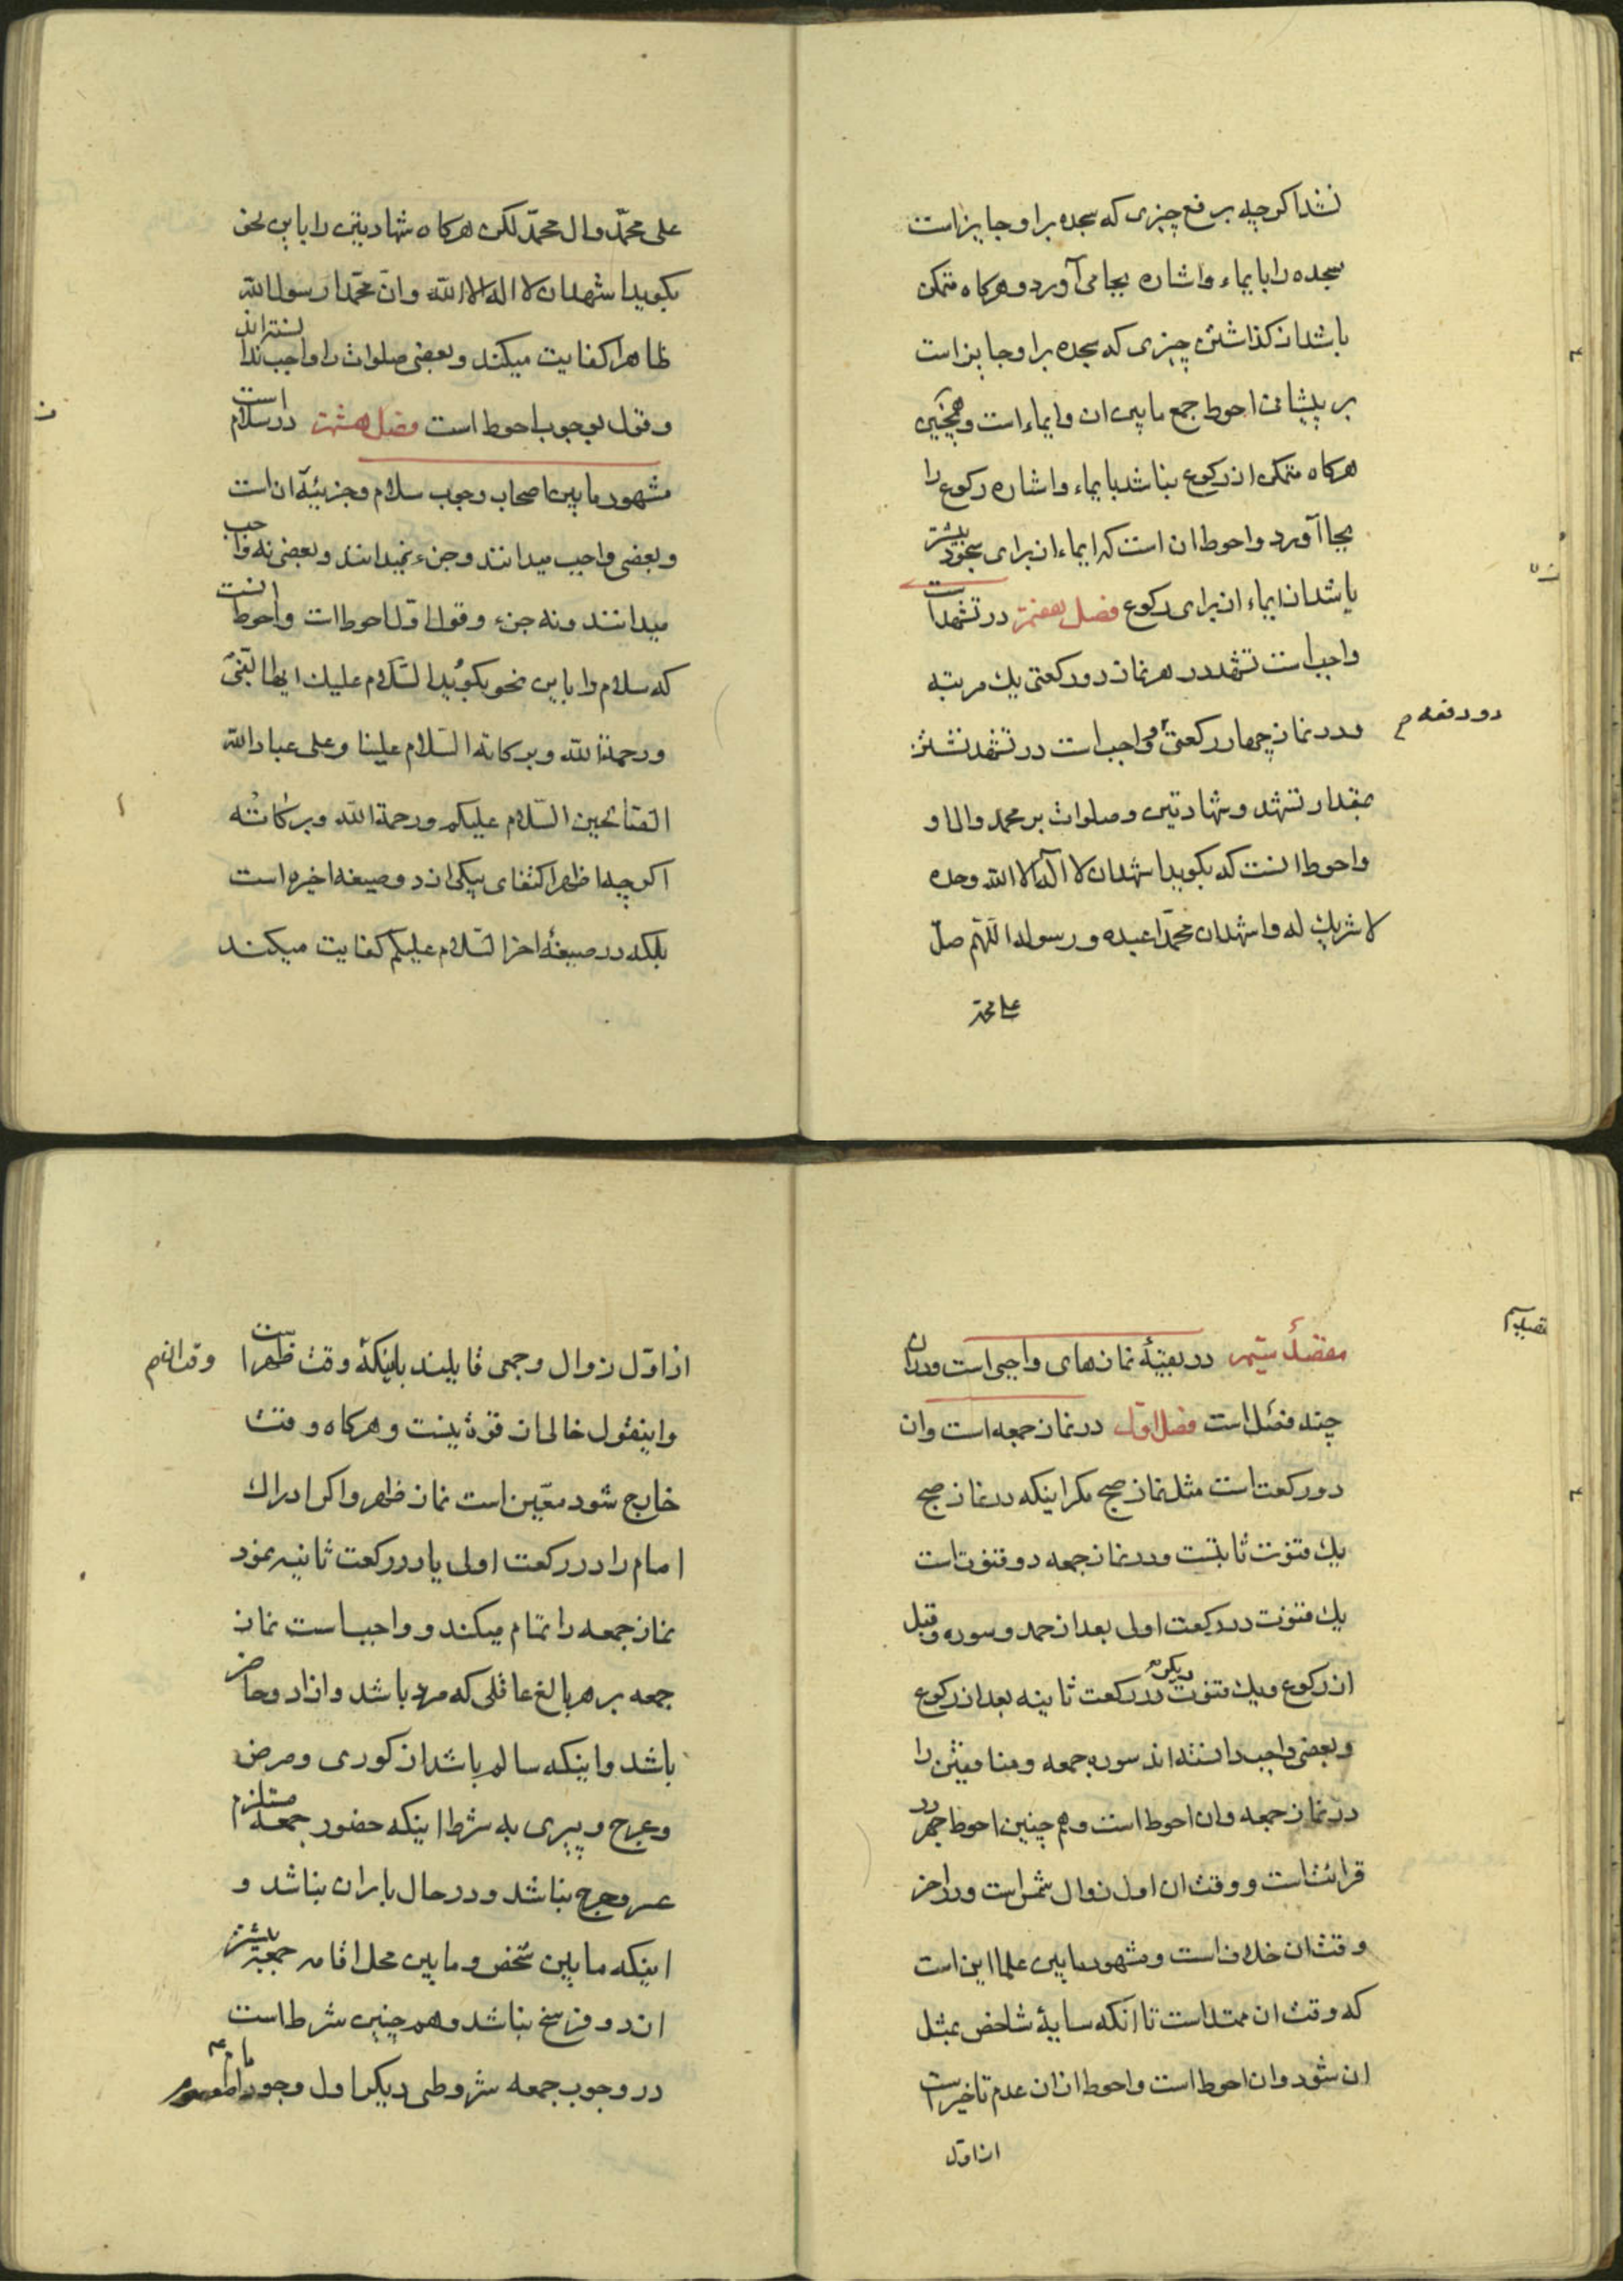 نشد اگرچه برفع چیزی که سجده براو جایز است
سجده را بایماء و اشاره بجا می آورد و هرکاه متمکن
باشد از کذاشتن چیزی که سجده براو جایز است
بر پیشانی احوط جمع مابین ان و ایماء است و همچنین
هرکاه متمکن از رکوع نباشد بایماء و اشاره رکوع را
بجا آورد و احوط ان است که ایماء ان برای سجود بیشتر
باشد از ایماء ان برای رکوع فصل هفتم در تشهد است
واجب است تشهد در هر نماز دو رکعتی یك مرتبه
و در نماز چهار رکعتی و واجب است در تشهد نشستن
دو دفعه م
بمقدار تشهد و شهادتین و صلوات بر محمد و ال او
و احوط انست که بکوید اشهد ان لا اله الا الله وحده
لا شریك له و اشهد ان محمدا عبده و رسوله اللهم صل
علی محمد
علی محمّد و ال محمّد لکن هرکاه شهادتین را باین نحو
بکوید اشهد ان لا اله الا الله و انّ محمّدا رسول الله
ظاهرا کفایت میکند و بعضی صلوات را واجب ندانسته اند
و قول بوجوب احوط است فصل هشتم در سلام است
مشهور مابین اصحاب وجوب سلام و جزئیّة ان است
و بعضی واجب میدانند و جزء نمیدانند و بعضی نه واجب
میدانند و نه جزء و قول اوّل احوط است و احوط انست
که سلام را باین نحو بکوید السّلام علیك ایها النّبیّ
و رحمة الله و برکاته السّلام علینا و علی عباد الله
الصّالحین السّلام علیکم و رحمة الله و برکاته
اکرچه اظهر اکتفای بیکی از دو صیغه اخیره است
بلکه در صیغهٔ اخر السّلام علیکم کفایت میکند
مقصد سیّم در بقیّهٔ نمازهای واجبی است و در ان
چند فصل است فصل اوّل در نماز جمعه است و ان
دو رکعت است مثل نماز صبح مکر اینکه در نماز صبح
یك قنوت ثابتست و در نماز جمعه دو قنوت است
یك قنوت در رکعت اولی بعد از حمد و سوره و قبل
از رکوع و یك قنوت دیکر در رکعت ثانیه بعد از رکوع
و بعضی واجب دانسته اند سوره جمعه و منافقین را
در نماز جمعه و ان احوط است و هم چنین احوط جهر در
قرائت است و وقت ان اول زوال شمس است و در اخر
وقت ان خلاف است و مشهور مابین علما این است
که وقت ان ممتد است تا انکه سایهٔ شاخص بمثل
ان شود و ان احوط است و احوط از ان عدم تاخیر است
از اوّل
از اوّل زوال و جمعی قایلند باینکهٔ وقت ظهر است وقت ان م
و اینقول خالی از قوّة نیست و هرکاه وقت
خارج شود معیّن است نماز ظهر و اکر ادراك
امام را در رکعت اولی یا در رکعت ثانیه نمود
نماز جمعه را تمام میکند و واجب است نماز
جمعه بر هر بالغ عاقلی که مرد باشد و ازاد و حاضر
باشد و اینکه سالم باشد از کوری و مرض
و عرج و پیری به شرط اینکه حضور جمعه مستلزم
عسر و حرج نباشد و در حال باران نباشد و
اینکه مابین شخص و مابین محل اقامه جمعه بیشتر
از دو فرسخ نباشد و هم چنین شرط است
در وجوب جمعه شروطی دیکر اول وجود امام